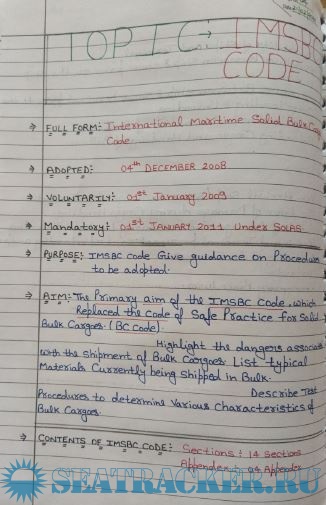 TOPIC:→ IMSBC
CODE
→ FULL FORM: International Maritime Solid Bulk Cargo
Code
→ ADOPTED: 04th DECEMBER 2008
→ VOLUNTARILY: 01st January 2009
→ Mandatory: 01st JANUARY 2011 Under SOLAS
→ PURPOSE: IMSBC code Give guidance on Procedures
to be adopted.
→ AIM: The Primary aim of the IMSBC Code, which
Replaced the code of Safe Practice for Solid
Bulk Cargoes. (BC code)
Highlight the dangers associa
with the shipment of Bulk Cargoes List typical
Materials Currently being Shipped in Bulk.
Describe Test
Procedures to determine Various Characteristics of
Bulk Cargoes.
→ CONTENTS OF IMSBC CODE: Sections: 14 Sections
Appendex: 04 Appendex
SEATRACKER.RU